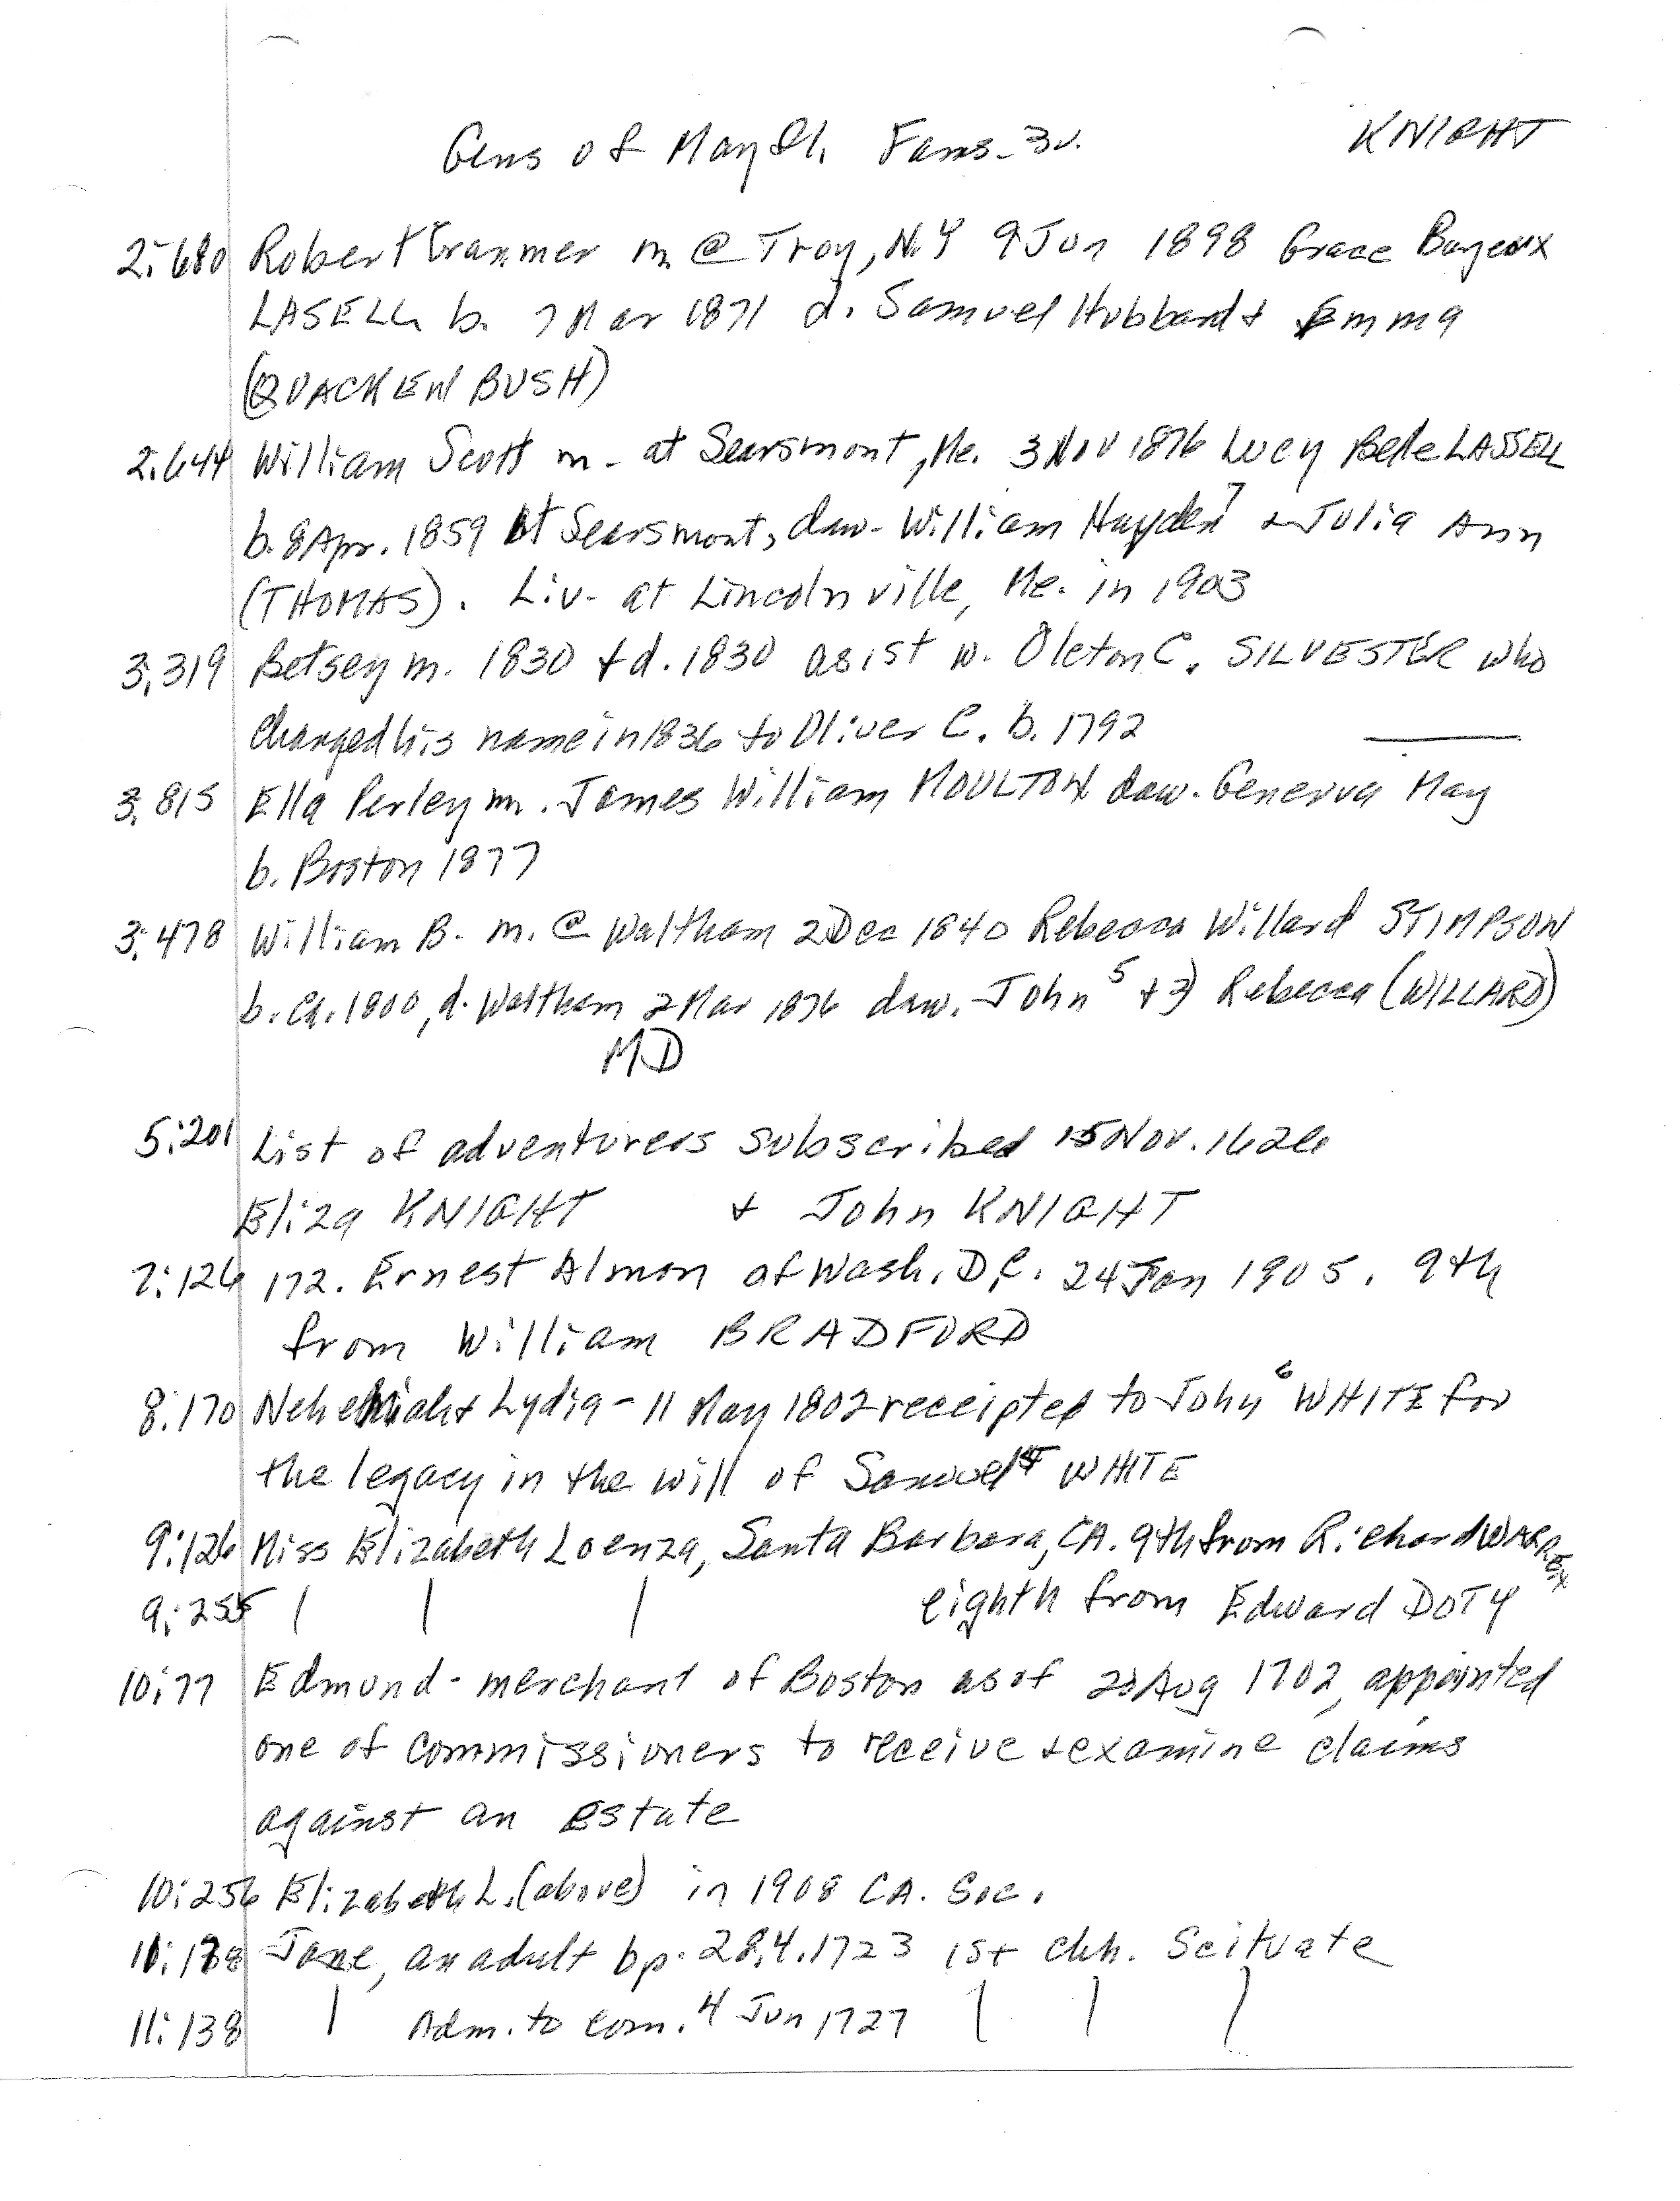 Gens of Mayfl. Fams. 3v. KNIGHT
2:680 Robert Cranmer m. @ Troy, N.Y 9 Jun 1898 Grace Bayeux
LASELL b. 7 Mar 1871 d. Samuel Hubbard & Emma
(QUACKENBUSH)
2:644 William Scott m. at Searsmont, Me. 3 Nov 1876 Lucy Belle LASSELL
b. 8 Apr. 1859 at Searsmont, dau. William Hayden 7 & Julia Ann
(THOMAS). Liv. at Lincolnville, Me. in 1903
3:319 Betsey m. 1830 & d. 1830 as 1st w. Oleton C. SILVESTER who
changed his name in 1836 to Oliver C. b. 1792
3:815 Ella Perley m. James William MOULTON dau. Generva May
b. Boston 1877
3:478 William B. m. @ Waltham 2 Dec 1840 Rebecca Willard STIMPSON
b. ca. 1800, d. Waltham 2 Mar 1876 dau. John 5 & 3) Rebecca (WILLARD)
MD
5:201 List of adventurers subscribed 15 Nov. 1626
Eliza KNIGHT & John KNIGHT
7:126 172. Ernest Almon of Wash. D.C. 24 Jan 1905. 9th
from William BRADFORD
8:170 Nehemiah & Lydia - 11 May 1802 receipted to John 6 WHITE for
the legacy in the will of Samuel WHITE
9:126 Miss Elizabeth Loenza, Santa Barbara, CA. 9th from Richard WARREN
9:255 | | | eighth from Edward DOTY
10:77 Edmund - merchant of Boston as of 20 Aug 1702, appointed
one of commissioners to receive & examine claims
against an Estate
10:256 Elizabeth L. (above) in 1908 CA. Soc.
Jane, an adult bp. 28.4.1723 1st chh. Scituate
11:138 | Adm. to com. 4 Jun 1727 | | |